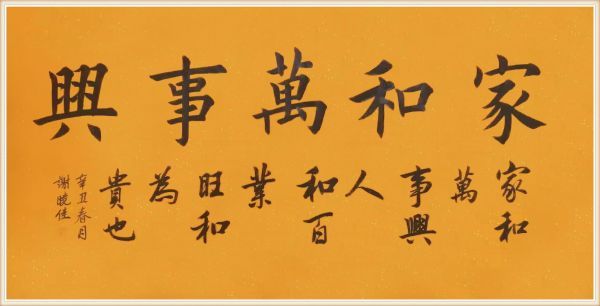 家和萬事興
家和
萬
事興
人
和百
業
旺和
為
貴也
辛丑春月
謝曉佳